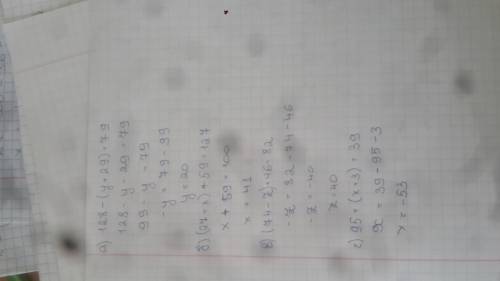 а) 128-(y+29)=79
128-y-29=79
99-y=79
-y=79-99
y=20
б) (27+x)+59=127
x+59=100
x=41
в) (74-z)+46=82
-z=82-74-46
-z=-40
z=40
г) 95+(x+3)=39
x=39-95-3
x=-53